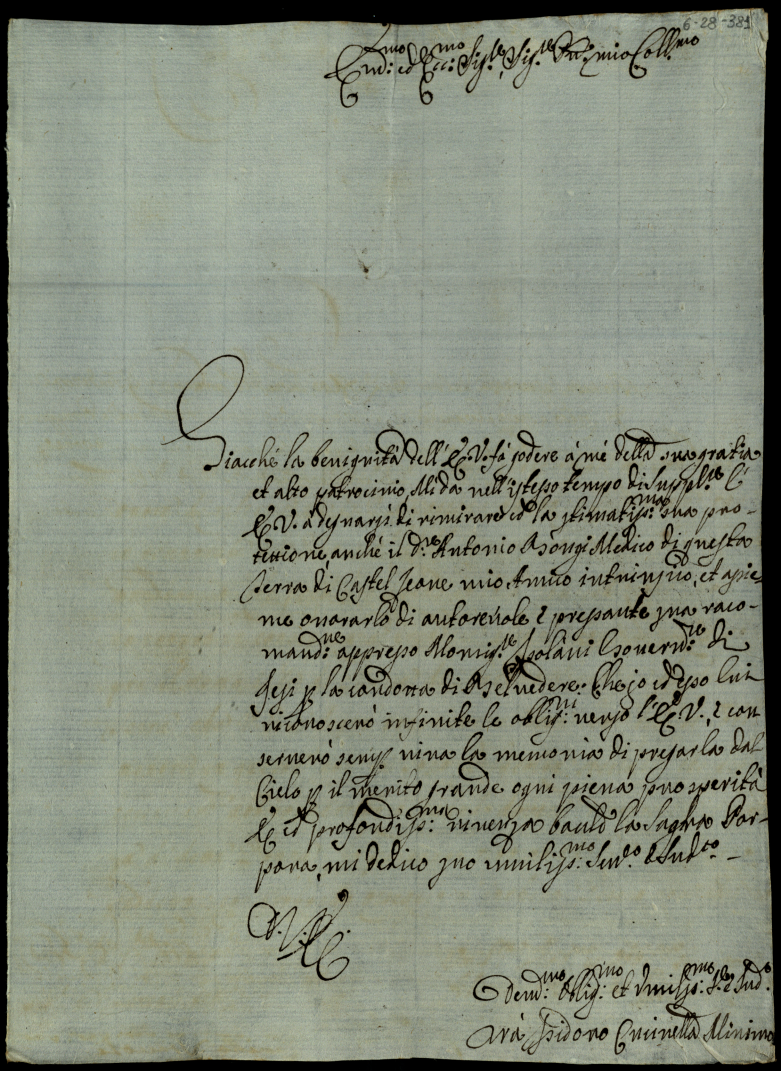 6-28-381
Em.mo: ed Ecc.mo: Sig.re, Sig.re P.ne: mio Coll.mo
Giacché la benignità dell'E.V. fà godere à mé della sua gratia
et alto patrocinio, Mi dà nell'istesso tempo di suppl.re l'
E.V. à degnarsi di rimirare cō la stimatiss.ma: sua pro-
tettione anche il d.re Antonio Medico di questa
Terra di Castel mio Amico intrinsico, et assie-
me onorarlo di autorevole e pressante sua raco-
mand.ne: appresso Monsig.re Isolani Governat.re: di
Jesi p la condotta di Belvedere: Che io ed esso lui
riconoscerò infinite le oblig.ni: verso l'E.V., e con
serverò semp viva la memoria di pregarla dal
Cielo p il merito grande ogni piena prosperità
E cō profondiss.ma: riverenza baciādo la Sagra Por-
pora, mi dedico suo umiliss.mo: Ser.o e Sud.to –
D. V. E.
Dev.mo: Oblig.mo: et Umiliss.mo: S.e e Sud.o
Frà Isidoro Minimo